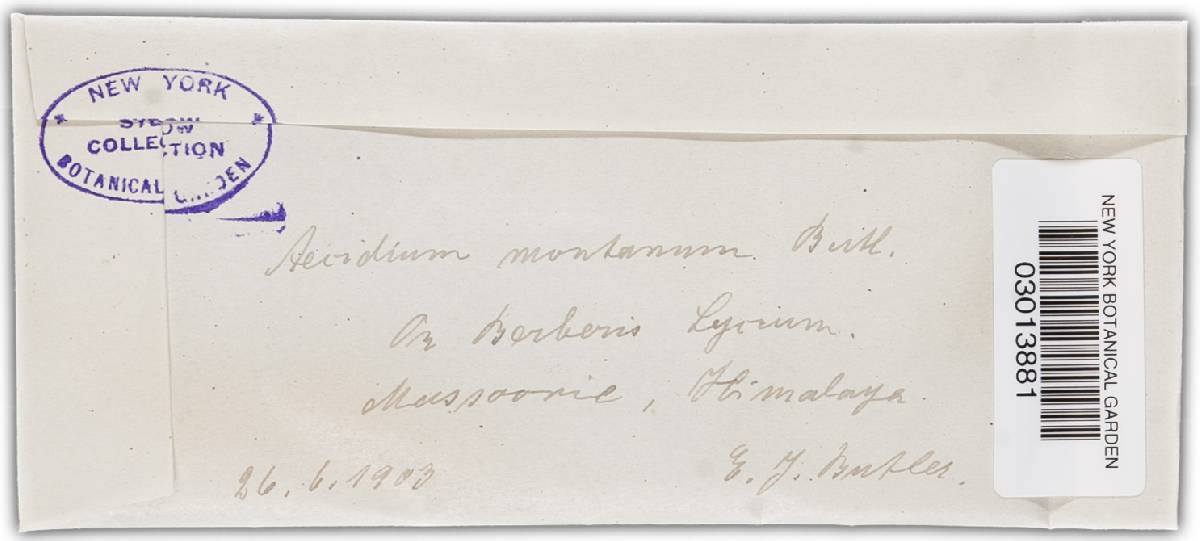 NEW YORK
SYDOW
COLLECTION
BOTANICAL GARDEN
Aecidium montanum Butl.
On Berberis Lycium.
Mussoorie, Himalaya.
26.6.1903
E. J. Butler.
NEW YORK BOTANICAL GARDEN
03013881